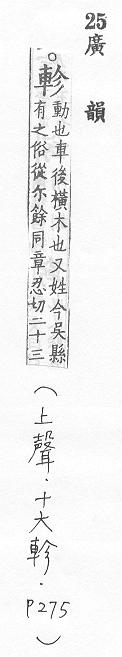 25廣韻
。軫動也車後橫木也又姓今吳縣
有之俗從尓餘同章忍切二十三
(上聲.十六軫.P275)